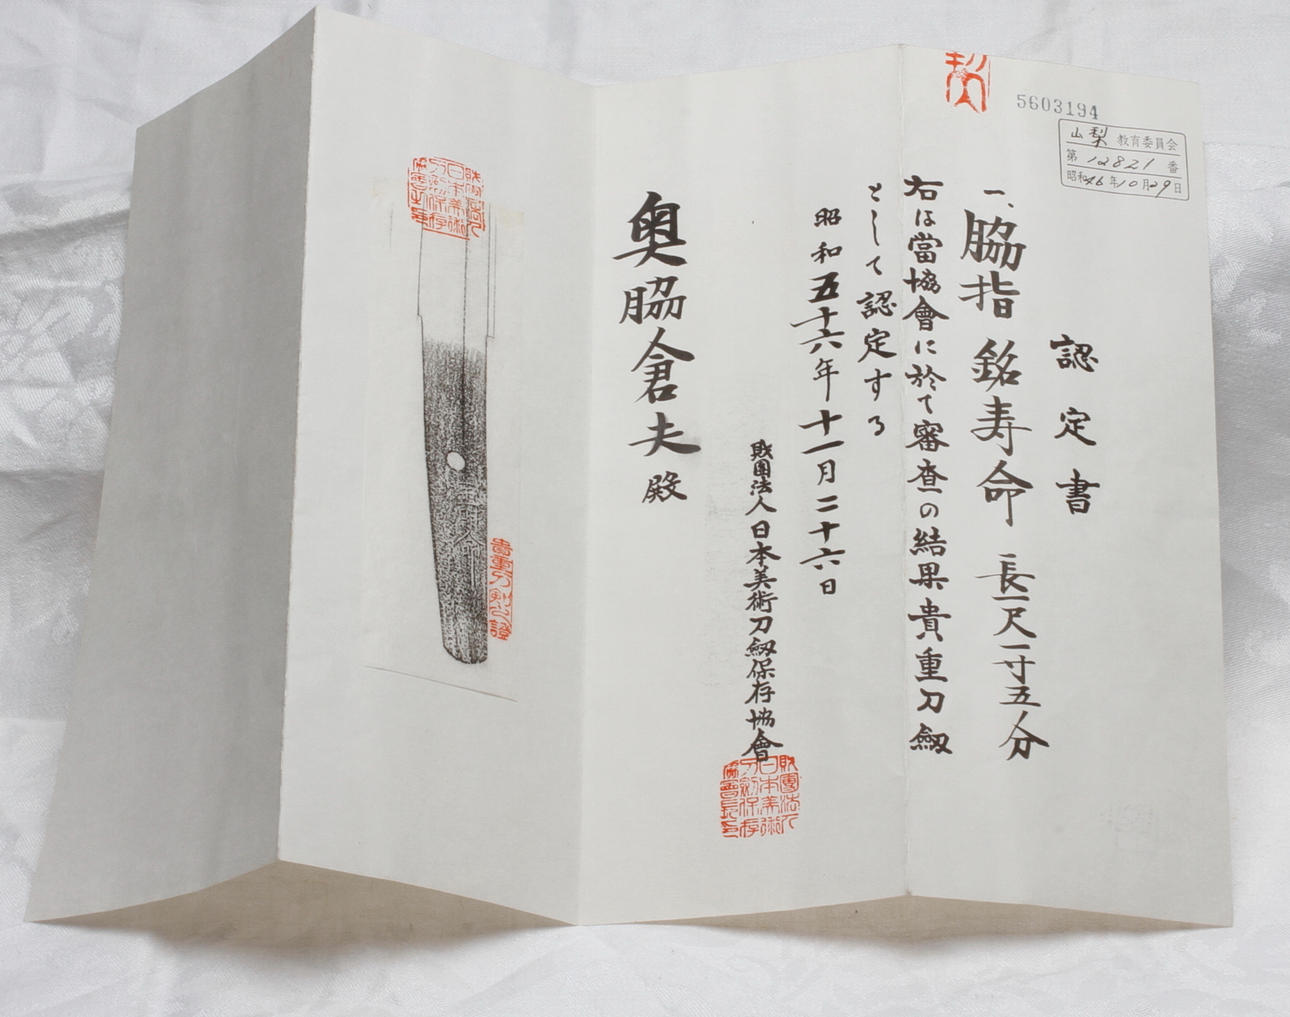 5603194
山梨教育委員会
第12821番
昭和46年10月29日
認定書
一、脇指 銘寿命 長一尺一寸五分
右は當協會に於て審査の結果貴重刀劔
として認定する
昭和五十六年十一月二十六日
財團法人日本美術刀劔保存協會
財團法人日本美術刀剣保存協會長之印
奥脇倉夫殿
貴重刀剣之證
寿命